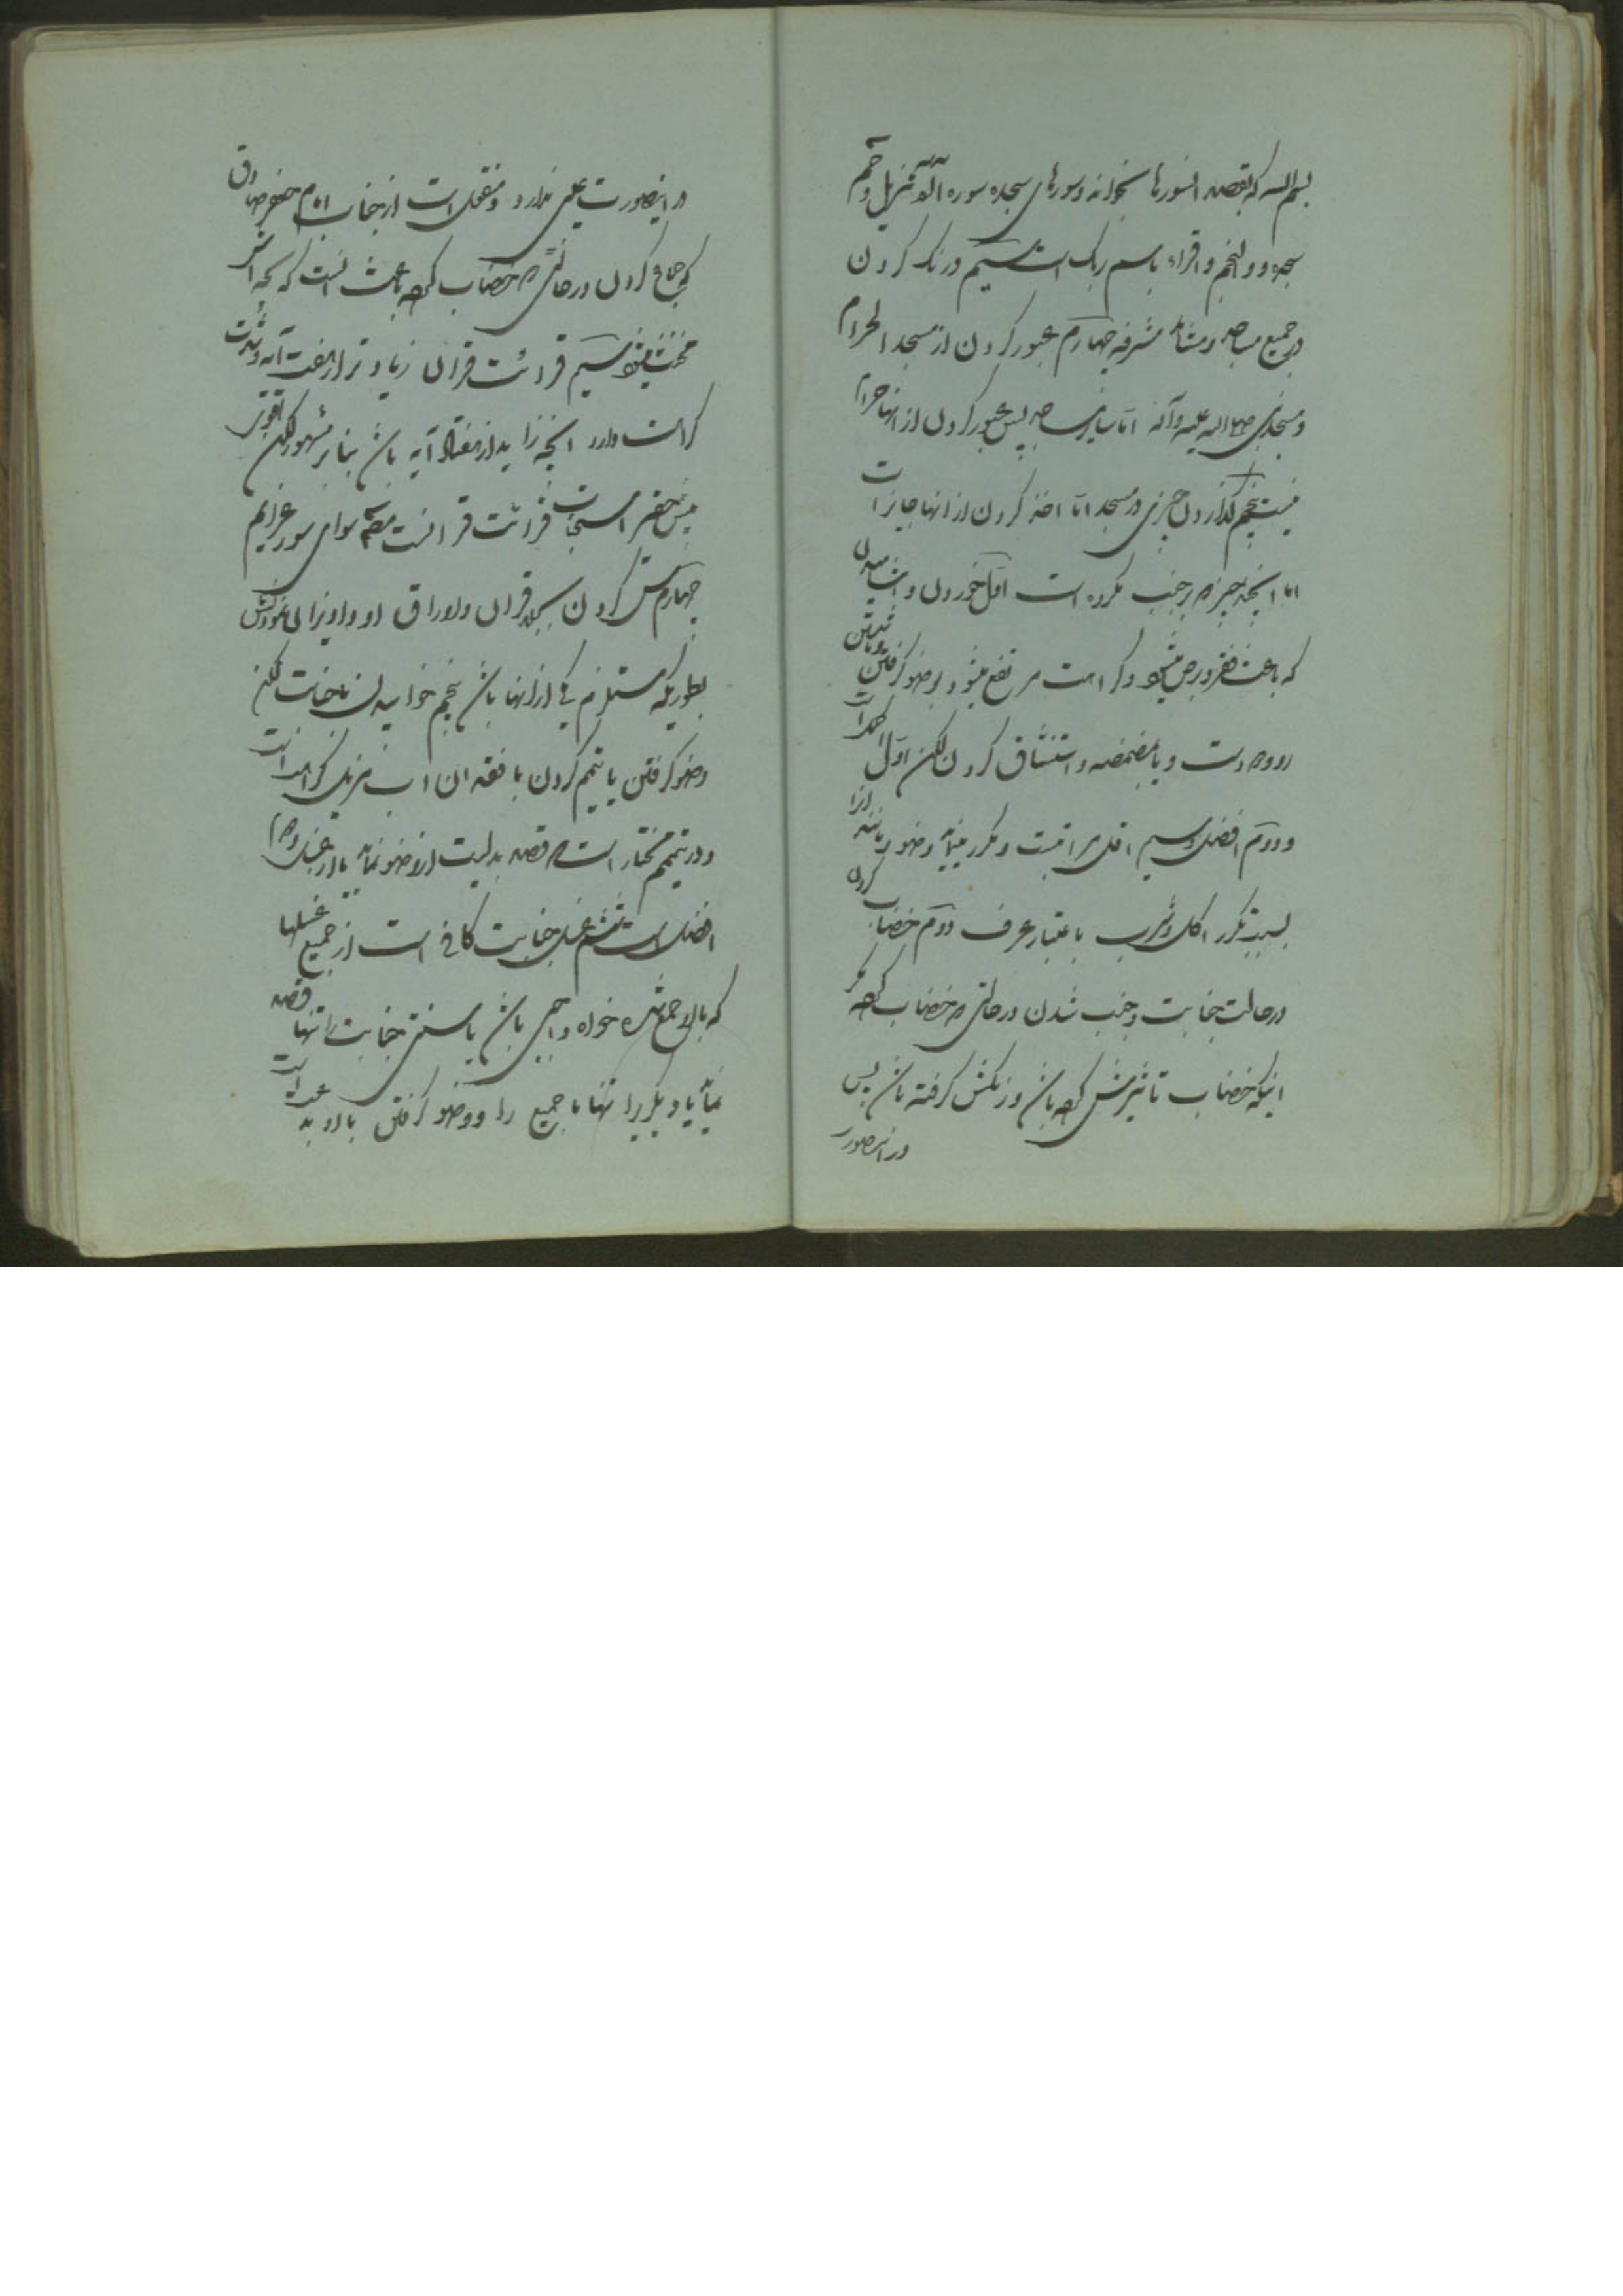 بسم الله که بقصد انسورها بخواند و سورهای سجده سوره الم تنزیل و حم
سجده و والنجم و اقراء باسم ربک است سیم درنک کردن
در جمیع مساجد و مشاهد مشرفه چهارم عبور کردن از مسجد الحرام
و مسجد نبی صلی الله علیه و آله اما سایر مساجد پس عبور کردن از انها حرام
نیست پنجم گذاردن چیزی در مسجد اما اخذ کردن از انها جایز است
اما انچه چیز که بر جنب مکروه است اول خوردن و اشامیدن
که باعث فقر و برص میشود و کراهت مرتفع میشود بوضو کرفتن و یا شستن
رو و دست و یا مضمضه و استنشاق کردن لکن اول اکمل است
و دوم افضل و سیم اقل مراتبست و مکرر مینماید وضو و مانند انرا
بسبب تکرر اکل و شرب باعتبار عرف دوم خضاب کردن
در حالت جنابت و جنب شدن در حالتی که خضاب کرده مکر
اینکه خضاب تاثیرش کرده باشد و رنکش کرفته باشد پس
در اینصورت
در اینصورت عیبی ندارد و منقول است از جناب امام جعفر صادق
که جماع کردن در حالتی که خضاب کرده باعث انست که بچه اش
مخنث میشود سیم قرائت قران زیادتر از هفت آیه و شدت
کراهت دارد انچه زاید از هفتاد آیه باشد بنابر مشهور لکن اقوی
پیش حقیر استحباب قرائت قرانست مطلقا سوای سور عزایم
چهارم مس کردن بجلد قران و اوراق او و اویزان نمودنش
بطوریکه مستلزم یکی از انها باشد پنجم خوابیدن با جنابت لکن
وضو کرفتن یا تیمم کردن با فقد ان اب مزیل کراهت است
و در تیمم مختار است که قصد بدلیت از وضو نماید یا از غسل و دوم
افضل است ششم غسل جنابت کافی است از جمیع غسلها
که بالا جمع شده خواه واجبی باشد یا سنتی جنابت را تنها قصد
نماید یا دیکری را تنها یا جمیع را و وضو کرفتن با او بدعت است